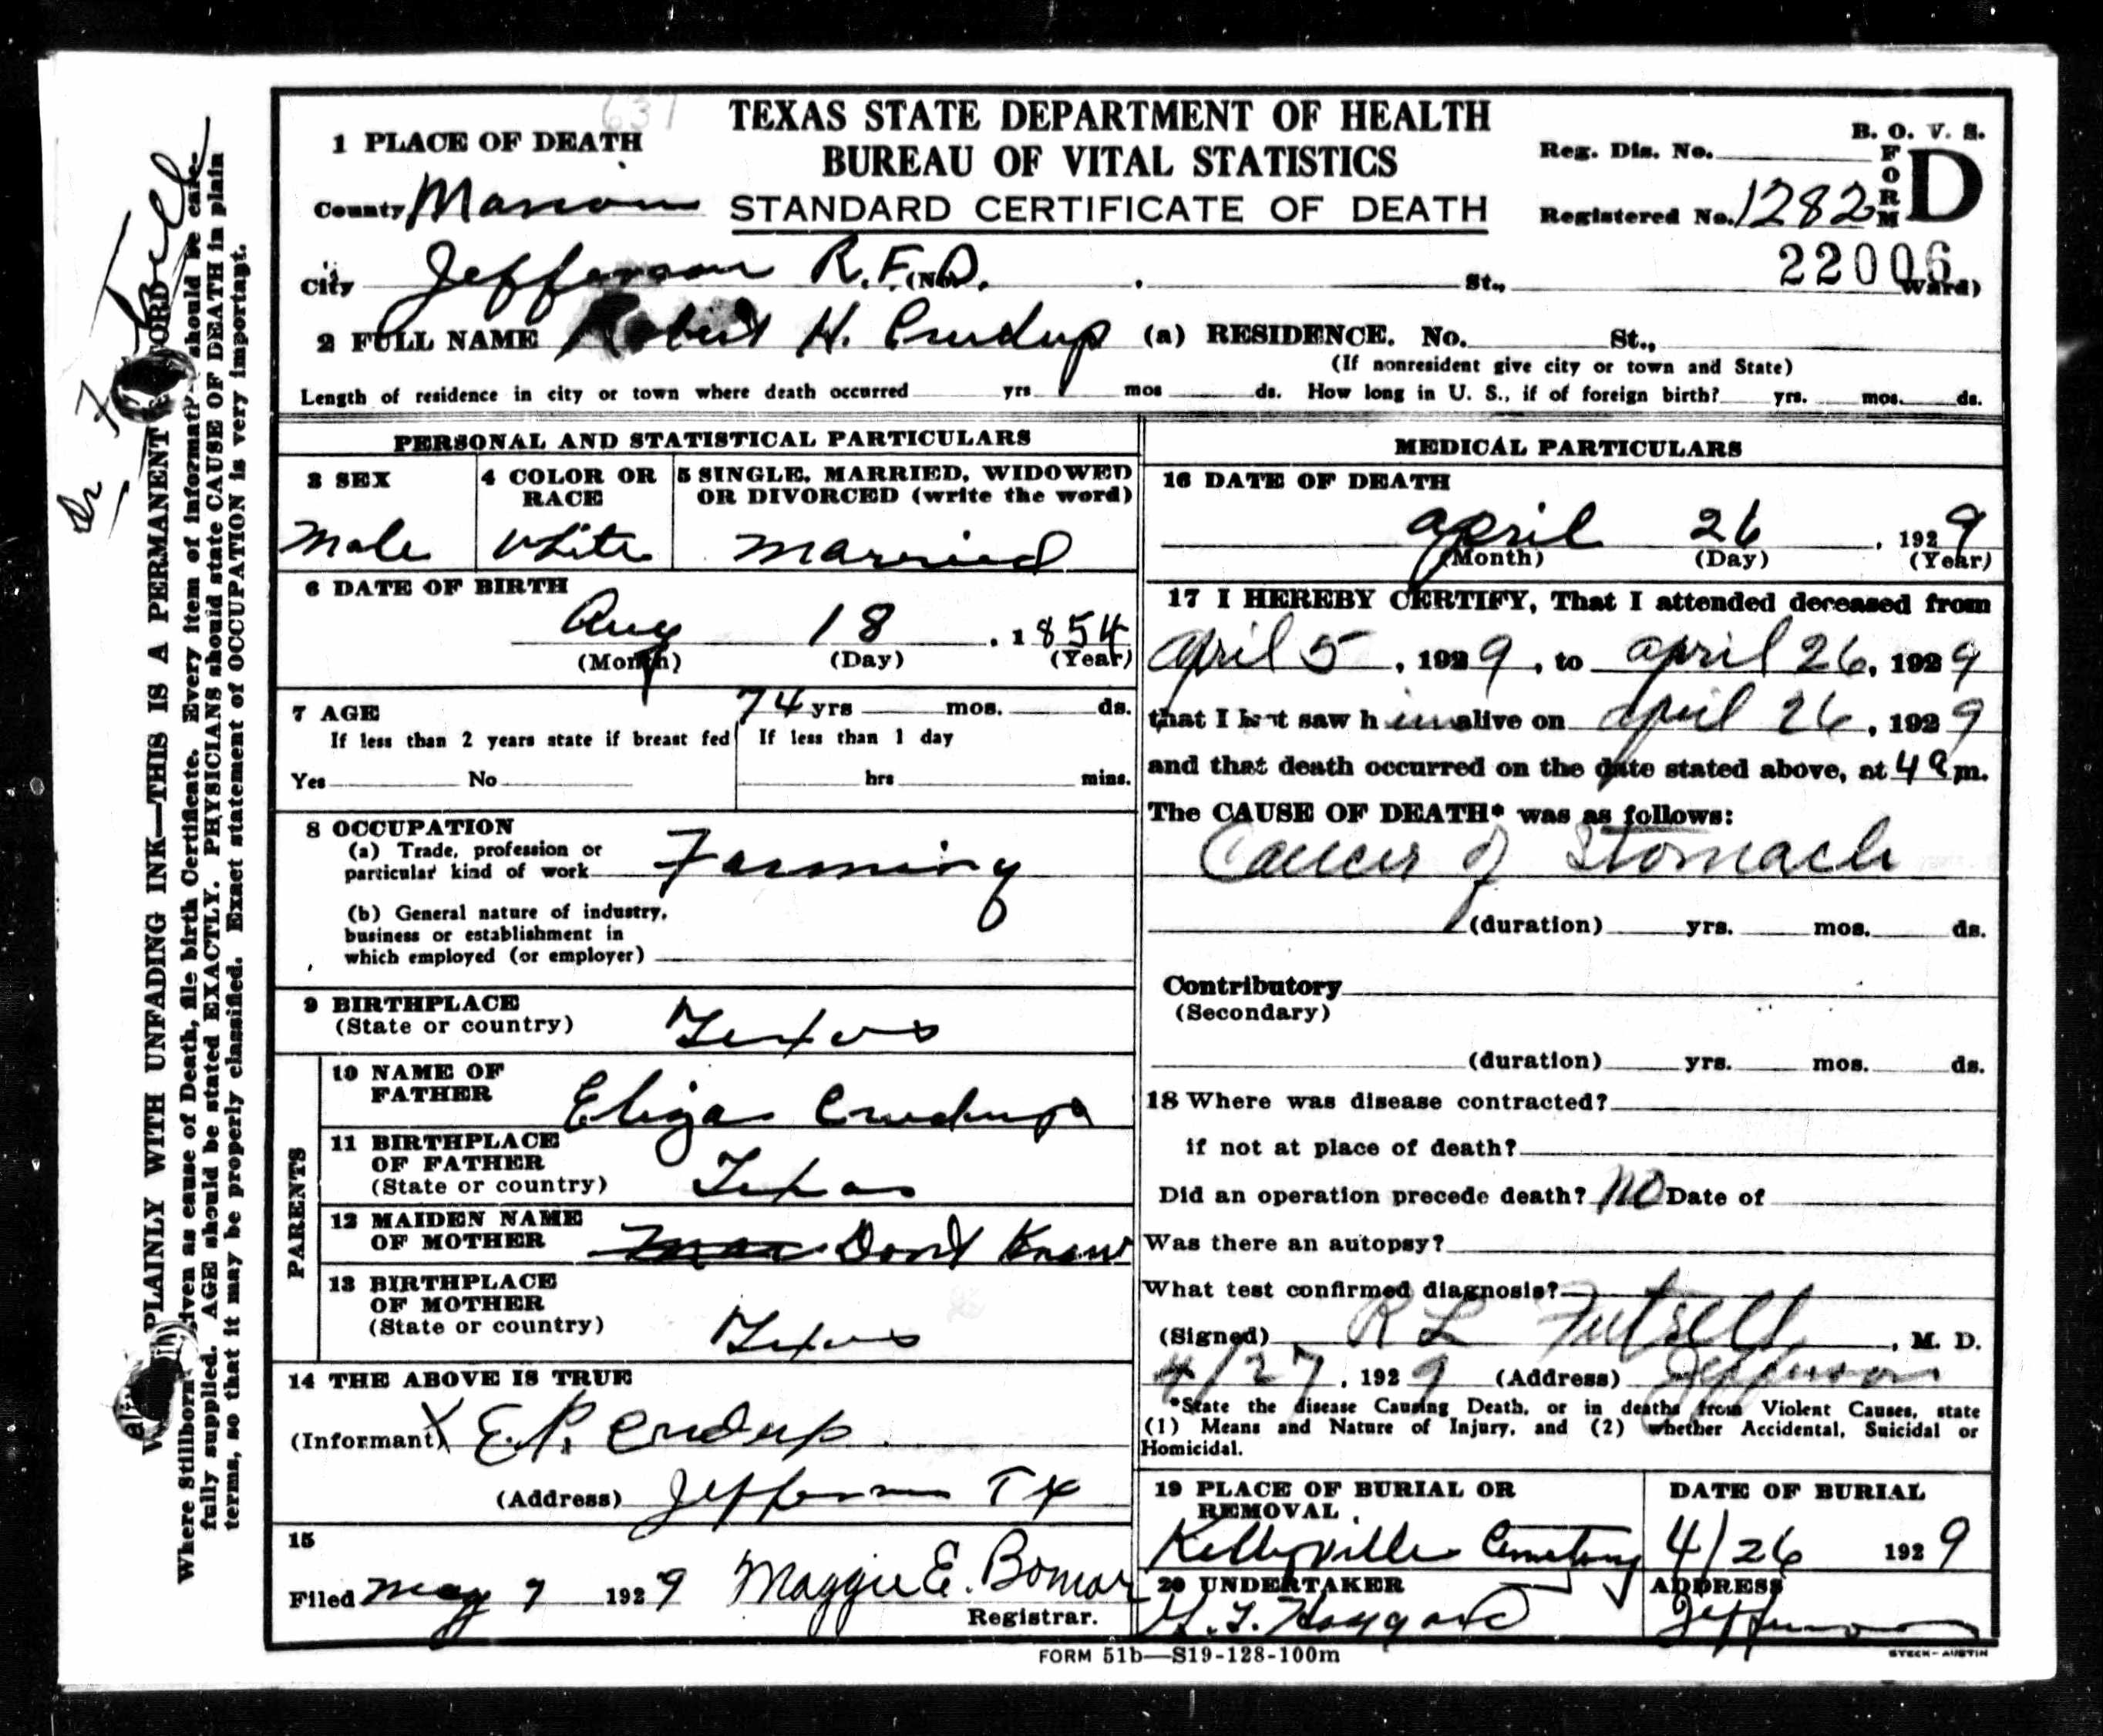 637
TEXAS STATE DEPARTMENT OF HEALTH
BUREAU OF VITAL STATISTICS
STANDARD CERTIFICATE OF DEATH
B. O. V. S.
FORM D
Reg. Dis. No.
Registered No. 1282
22006
1 PLACE OF DEATH
County Marion
City Jefferson R.F.D. (No. St., Ward)
2 FULL NAME Robert H. Crudup (a) RESIDENCE. No. St.,
(If nonresident give city or town and State)
Length of residence in city or town where death occurred yrs mos ds. How long in U. S., if of foreign birth? yrs. mos. ds.
PERSONAL AND STATISTICAL PARTICULARS
3 SEX
Male
4 COLOR OR RACE
White
5 SINGLE, MARRIED, WIDOWED
OR DIVORCED (write the word)
Married
6 DATE OF BIRTH
Aug 18, 1854
(Month) (Day) (Year)
7 AGE 74 yrs mos. ds.
If less than 2 years state if breast fed
Yes No
If less than 1 day
hrs mins.
8 OCCUPATION
(a) Trade, profession or
particular kind of work Farming
(b) General nature of industry,
business or establishment in
which employed (or employer)
9 BIRTHPLACE
(State or country) Texas
PARENTS
10 NAME OF
FATHER Eliga Crudup
11 BIRTHPLACE
OF FATHER
(State or country) Texas
12 MAIDEN NAME
OF MOTHER Dont Know
13 BIRTHPLACE
OF MOTHER
(State or country) Texas
14 THE ABOVE IS TRUE
(Informant) X E.P. Crudup
(Address) Jefferson Tx
15
Filed May 7 1929 Maggie E. Bomar
Registrar.
MEDICAL PARTICULARS
16 DATE OF DEATH
April 26, 1929
(Month) (Day) (Year)
17 I HEREBY CERTIFY, That I attended deceased from
April 5, 1929, to April 26, 1929
that I last saw him alive on April 26, 1929
and that death occurred on the date stated above, at 4 a m.
The CAUSE OF DEATH* was as follows:
Cancer of Stomach
(duration) yrs. mos. ds.
Contributory
(Secondary)
(duration) yrs. mos. ds.
18 Where was disease contracted?
if not at place of death?
Did an operation precede death? No Date of
Was there an autopsy?
What test confirmed diagnosis?
(Signed) R L Futrell, M. D.
4/27, 1929 (Address) Jefferson
*State the disease Causing Death, or in deaths from Violent Causes, state
(1) Means and Nature of Injury, and (2) whether Accidental, Suicidal or
Homicidal.
19 PLACE OF BURIAL OR
REMOVAL
Kellyville Cemetery
DATE OF BURIAL
4/26 1929
20 UNDERTAKER
Haggard
ADDRESS
Jefferson
FORM 51b—S19-128-100m
STECK-AUSTIN
PLAINLY WITH UNFADING INK—THIS IS A PERMANENT
Where Stillborn given as cause of Death, file birth Certificate. Every item of information should be care-
fully supplied. AGE should be stated EXACTLY. PHYSICIANS should state CAUSE OF DEATH in plain
terms, so that it may be properly classified. Exact statement of OCCUPATION is very important.